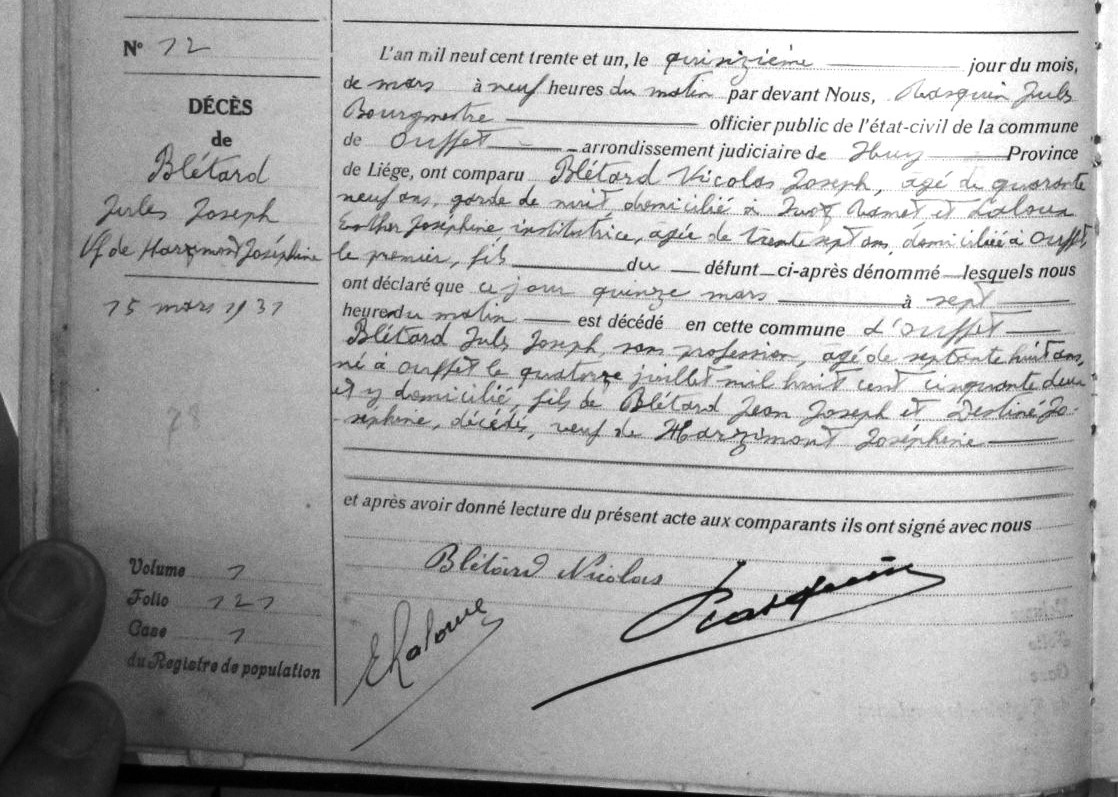 N° 12
DÉCÈS
de
Blétard
Jules Joseph
Vf de Harzimont Joséphine
15 mars 1931
78
Volume 1
Folio 121
Case 1
du Registre de population
L'an mil neuf cent trente et un, le quinzième jour du mois,
de mars à neuf heures du matin par devant Nous, Rasquin Jules
Bourgmestre officier public de l'état-civil de la commune
de Ouffet arrondissement judiciaire de Huy Province
de Liége, ont comparu Blétard Nicolas Joseph, âgé de quarante
neuf ans, garde de nuit domicilié à Ramet et Laloux
Esther Joséphine institutrice, âgée de trente sept ans, domiciliée à Ouffet
le premier, fils du défunt ci-après dénommé lesquels nous
ont déclaré que ce jour quinze mars à sept
heures du matin est décédé en cette commune d'Ouffet
Blétard Jules Joseph, sans profession, âgé de septante huit ans,
né à Ouffet le quatorze juillet mil huit cent cinquante deux
et y domicilié, fils de Blétard Jean Joseph et Destiné Jo-
séphine, décédés, veuf de Harzimont Joséphine
et après avoir donné lecture du présent acte aux comparants ils ont signé avec nous
Blétard Nicolas
Rasquin
E Laloux